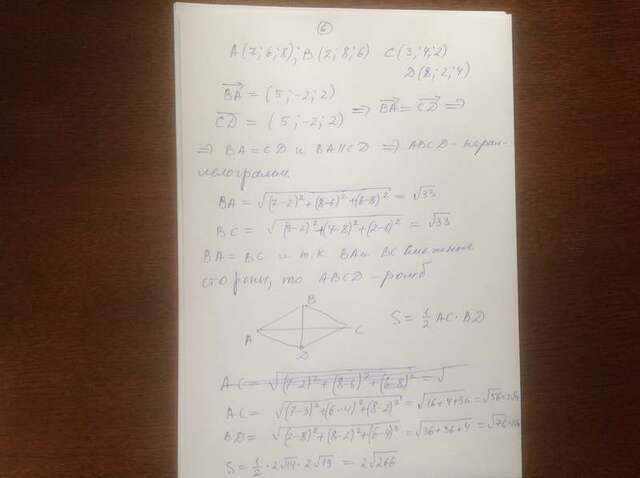 6
A(7;6;8); B(2;8;6) C(3;4;2)
D(8;2;4)
BA = (5;-2;2)
CD = (5;-2;2) ⇒ BA = CD ⇒
⇒ BA = CD и BA∥CD ⇒ ABCD - парал-
лелограмм
BA = √((7-2)²+(8-6)²+(6-8)²) = √33
BC = √((3-2)²+(4-8)²+(2-6)²) = √33
BA = BC и т.к BA и BC смежные
стороны, то ABCD - ромб
B
A
C
D
S = 1/2 AC·BD
AC = √((7-2)²+(8-6)²+(6-8)²) = √
AC = √((7-3)²+(6-4)²+(8-2)²) = √16+4+36 = √56 = 2√14
BD = √((2-8)²+(8-2)²+(6-4)²) = √36+36+4 = √76
S = 1/2 · 2√14 · 2√19 = 2√266